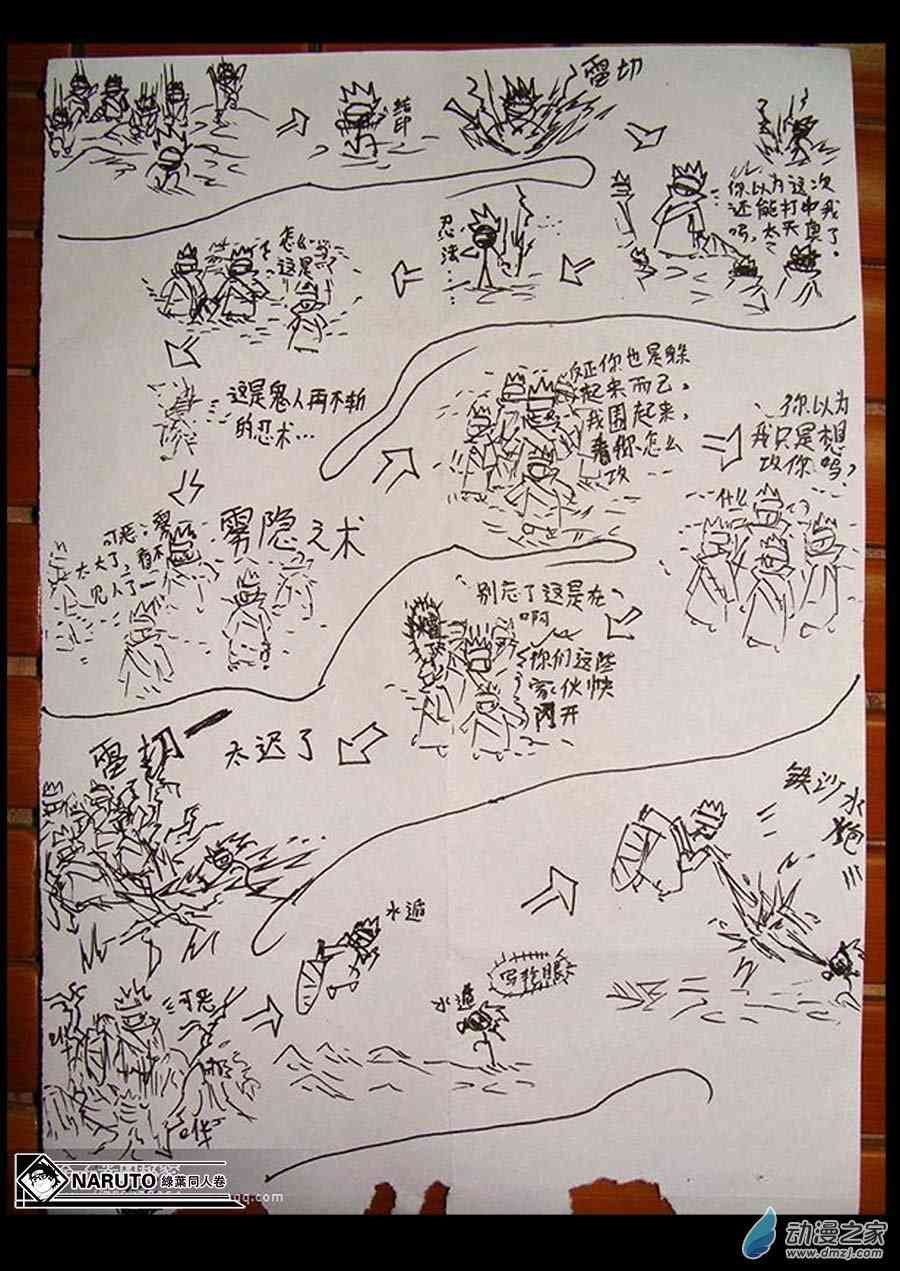 结
印
雷切
你以为这次
还能打中我
吗，太天真了。
忍
法
…
怎么
这是
这是鬼人再不斩
的忍术…
可恶；雾
太大了，看不
见人了一
雾隐之术
反正你也是躲
起来而已，
我围起来，
看你怎么
攻
你以为
我只是想
攻你吗，
什么
别忘了这是在
啊
你们这些
家伙快
闪开
太迟了
雷切一
可恶
水遁
水遁
写轮眼
铁沙水炮
!!!
NARUTO 綠葉同人卷
动漫之家
www.dmzj.com